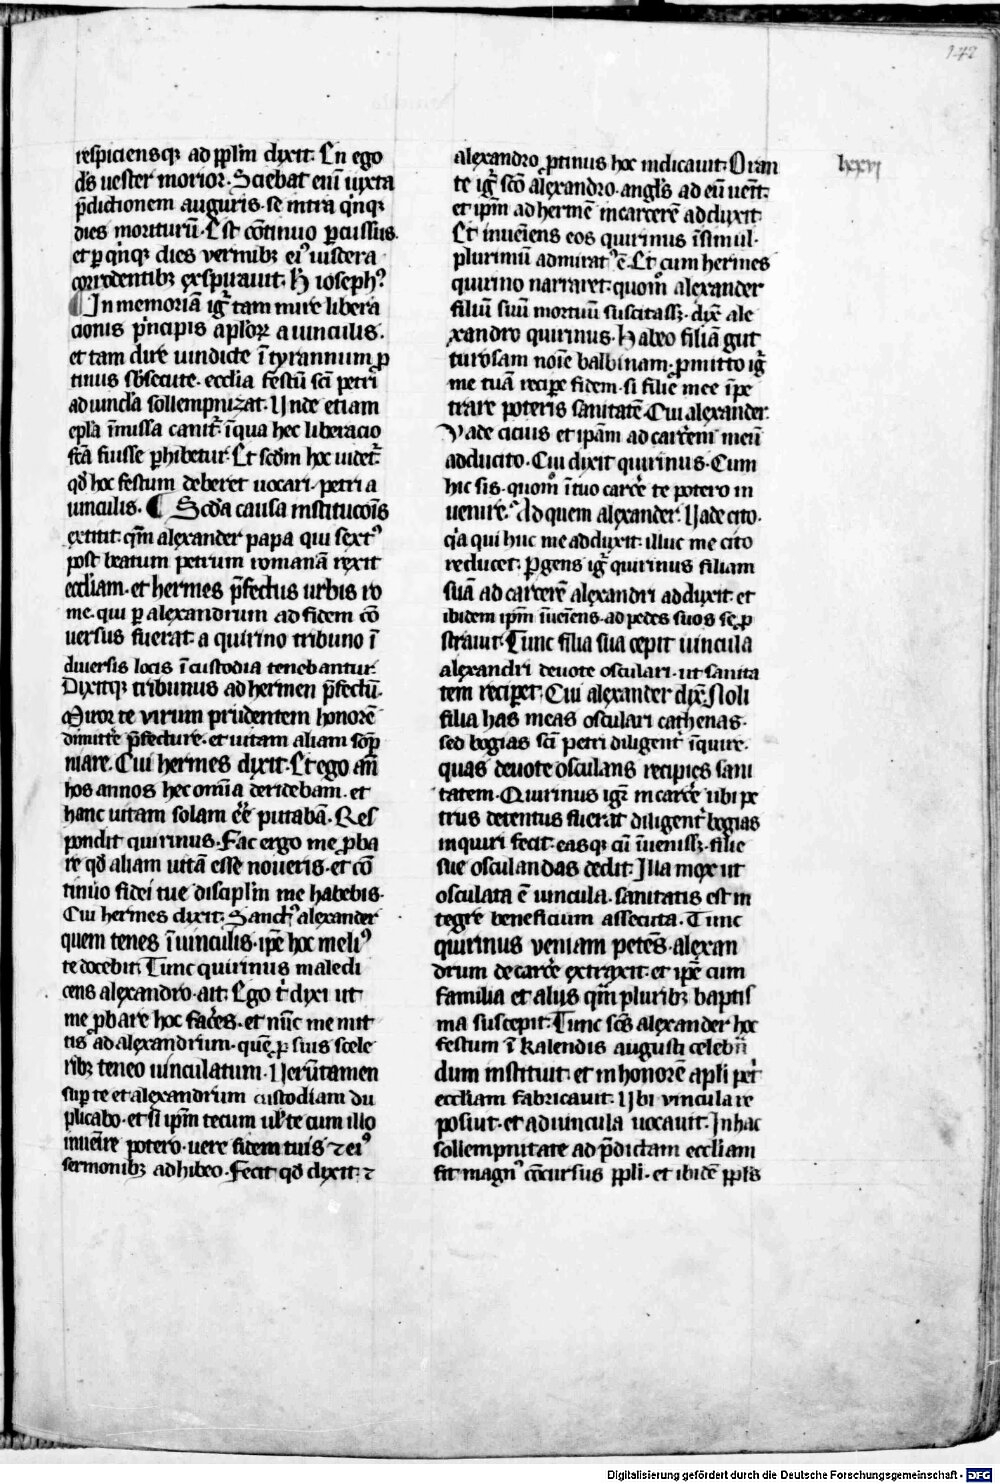 142
lxxvj
respiciensq; ad pplm̄ dixit. En ego
ds̄ uester morior. Sciebat eni͂ iuxta
p̄dictionem auguris. se intra qinq;
dies moriturū. Est cōtinuo ꝑcussus.
et ꝑ qinq; dies vermib; eiꝰ uiscera
corrodentib; exspirauit. H̄ iosephꝰ
¶ In memoriā igr̄ tam mire libera
cionis pincipis aplorꝝ a uinculis.
et tam dire uindicte ī tyrannum ꝓ
tinus sb̄secute. ecclīa festū sc̄i petri
ad uincl̄a sollempnizat. Unde etiam
epl̄a īmissa canitr̄. īqua hec liberacio
fc̄a fuisse ꝑhibetur. Et scdm̄ hoc uidetr̄.
qd̄ hoc festum deberet uocari. petri a
uinculis. ¶ Scd̄a causa institucōīs
extitit. qm̄ alexander papa qui sextꝰ
post beatum petrum romanā rexit
eccliam. et hermes p̄fectus urbis ro
me. qui ꝑ alexandrum ad fidem cō
uersus fuerat. a quirino tribuno ī
diuersis locis ī custodia tenebantur.
Dixitq; tribunus ad hermen p̄fectū.
Miror te virum prudentem honorē
dimittere p̄fecture. et uitam aliam sōp
niare. Cui hermes dixit. Et ego an̄
hos annos hec omīa deridebam. et
hanc uitam solam ēē putabā. Res
pondit quirinus. Fac ergo me ꝓba
re qd̄ aliam uitā esse noueris. et cō
tinuo fidei tue discipl̄m me habebis.
Cui hermes dixit. Sanctꝰ alexander
quem tenes ī uinculis. ip̄e hoc meliꝰ
te docebit. Tunc quirinus maledi
cens alexandro. ait. Ego t̄ dixi ut
me ꝓbare hoc faceres. et nūc me mit
tis ad alexandrum. quē ꝓ suis scele
rib; teneo uinculatum. Uerūtamen
suꝑ te et alexandrum custodiam du
plicabo. et si ip̄m tecum ul̄ te cum illo
inuenire potero. uere fidem tuis ⁊ eiꝰ
sermonib; adhibeo. Fecit qd̄ dixit. ⁊
alexandro ꝓtinus hoc indicauit. Oran
te igr̄ sc̄o alexandro. angl̄s ad eū uen̄t.
et ip̄m ad hermē in carcerē adduxit.
Et inueīens eos quirinus īsimul.
plurimū admiratꝰ ē. Et cum hermes
quirino narraret. quom̄ alexander
filiū suū mortuū suscitass;. dix̄ ale
xandro quirinus. Habeo filiā gut
turosam noīe balbinam. ꝓmitto igr̄
me tuā recipe fidem. si filie mee īpe
trare poteris sanitatē. Cui alexander.
Vade cicius et ipām ad carcerem meū
adducito. Cui dixit quirinus. Cum
hic sis. quom̄ ī tuo carcere te potero in
uenire. Ad quem alexander. Uade cito.
qia qui huc me adduxit. illuc me cito
reducet. Pergens igr̄ quirinus filiam
suā ad carcerē alexandri adduxit. et
ibidem ip̄m īueīens. ad pedes suos se ꝓ
strauit. Tunc filia sua cepit uincula
alexandri deuote osculari. ut sanita
tem reciperet. Cui alexander dix̄. Noli
filia has meas osculari cathenas.
sed bogias sc̄i petri diligentr̄ īquire.
quas deuote osculans recipies sani
tatem. Quirinus igr̄ in carcere ubi pe
trus detentus fuerat diligentr̄ bogias
inquiri fecit. easq; cū īueniss;. filie
sue osculandas dedit. Illa mox ut
osculata ē uincula. sanitatis est in
tegre beneficium assecuta. Tunc
quirinus veniam petens. alexan
drum de carcere extraxit. et ip̄e cum
familia et alijs qm̄ pluribꝫ baptis
ma suscepit. Tunc scs̄ alexander hoc
festum ī kalendis augusti celebrā
dum instituit. et in honorē apl̄i petri
eccliam fabricauit. Ubi vincula re
posuit. et ad uincula uocauit. In hac
sollempnitate ad p̄dictam eccliam
fit magnꝰ cōcursus ppl̄i. et ibidē ppl̄s
Digitalisierung gefördert durch die Deutsche Forschungsgemeinschaft - DFG